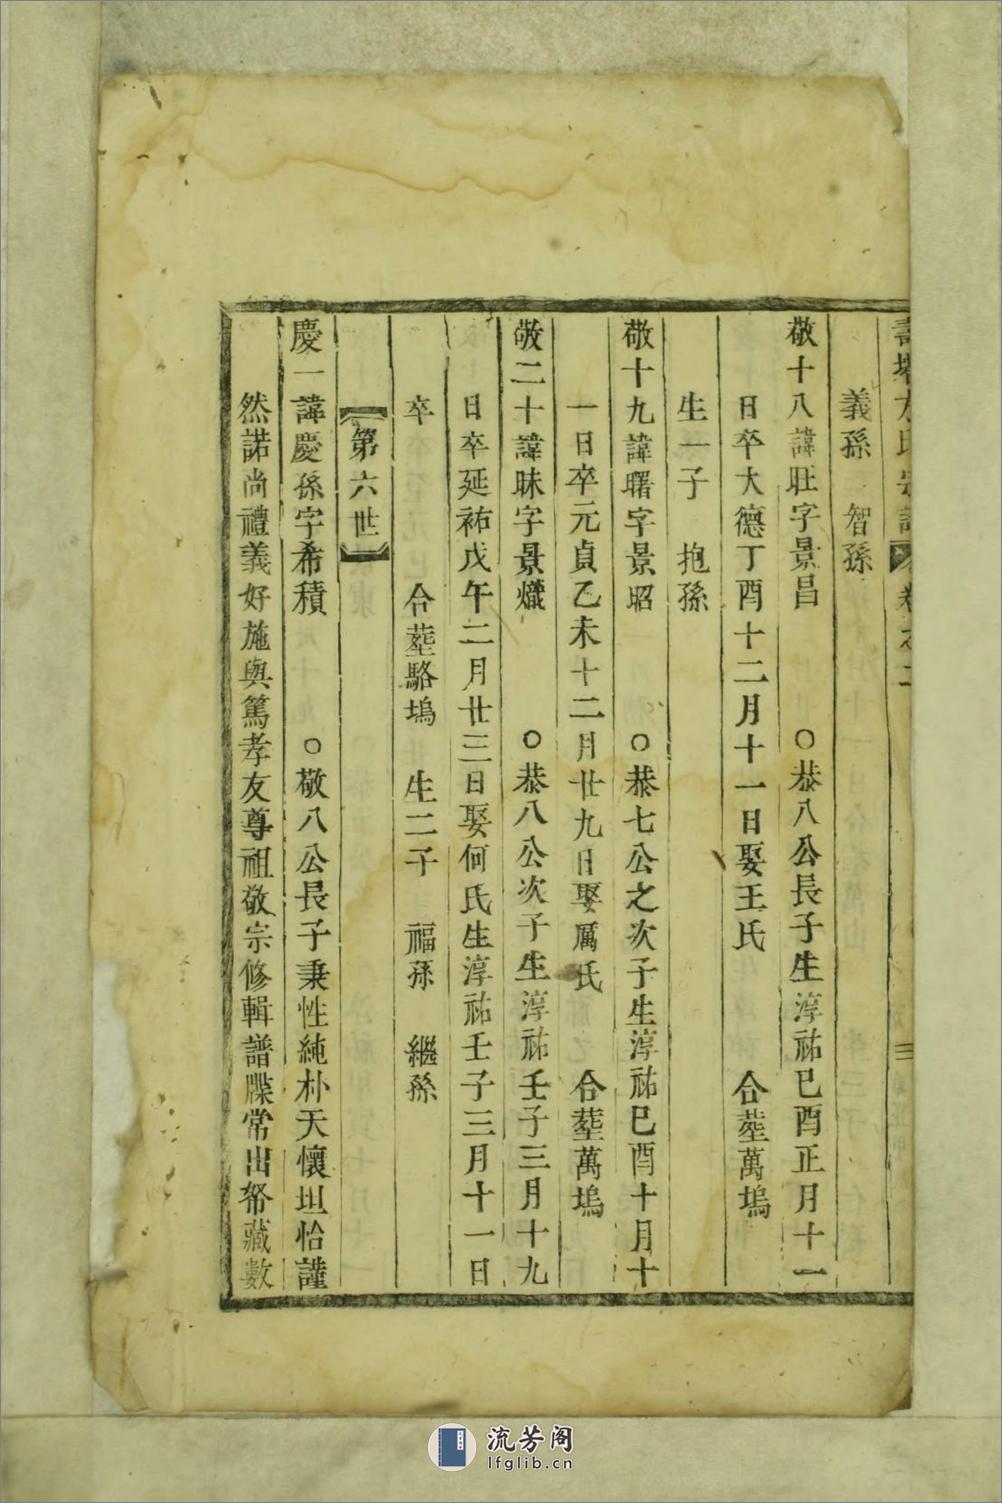 方氏宗譜 卷之二
三
義孫 智孫
敬十八諱旺字景昌 ○恭八公長子生淳祐已酉正月十一
日卒大德丁酉十二月十一日娶王氏 合塟萬塢
生一子 抱孫
敬十九諱曙字景昭 ○恭七公之次子生淳祐已酉十月十
一日卒元貞乙未十二月廿九日娶厲氏 合塟萬塢
敬二十諱昧字景熾 ○恭八公次子生淳祐壬子三月十九
日卒延祐戊午二月廿三日娶何氏生淳祐壬子三月十一日
卒 合塟駱塢 生二子 福孫 繼孫
【第六世】
慶一諱慶孫字希積 ○敬八公長子秉性純朴天懷坦恰謹
然諾尚禮義好施與篤孝友尊祖敬宗修輯譜牒常出帑藏數
流芳阁
lfglib.cn